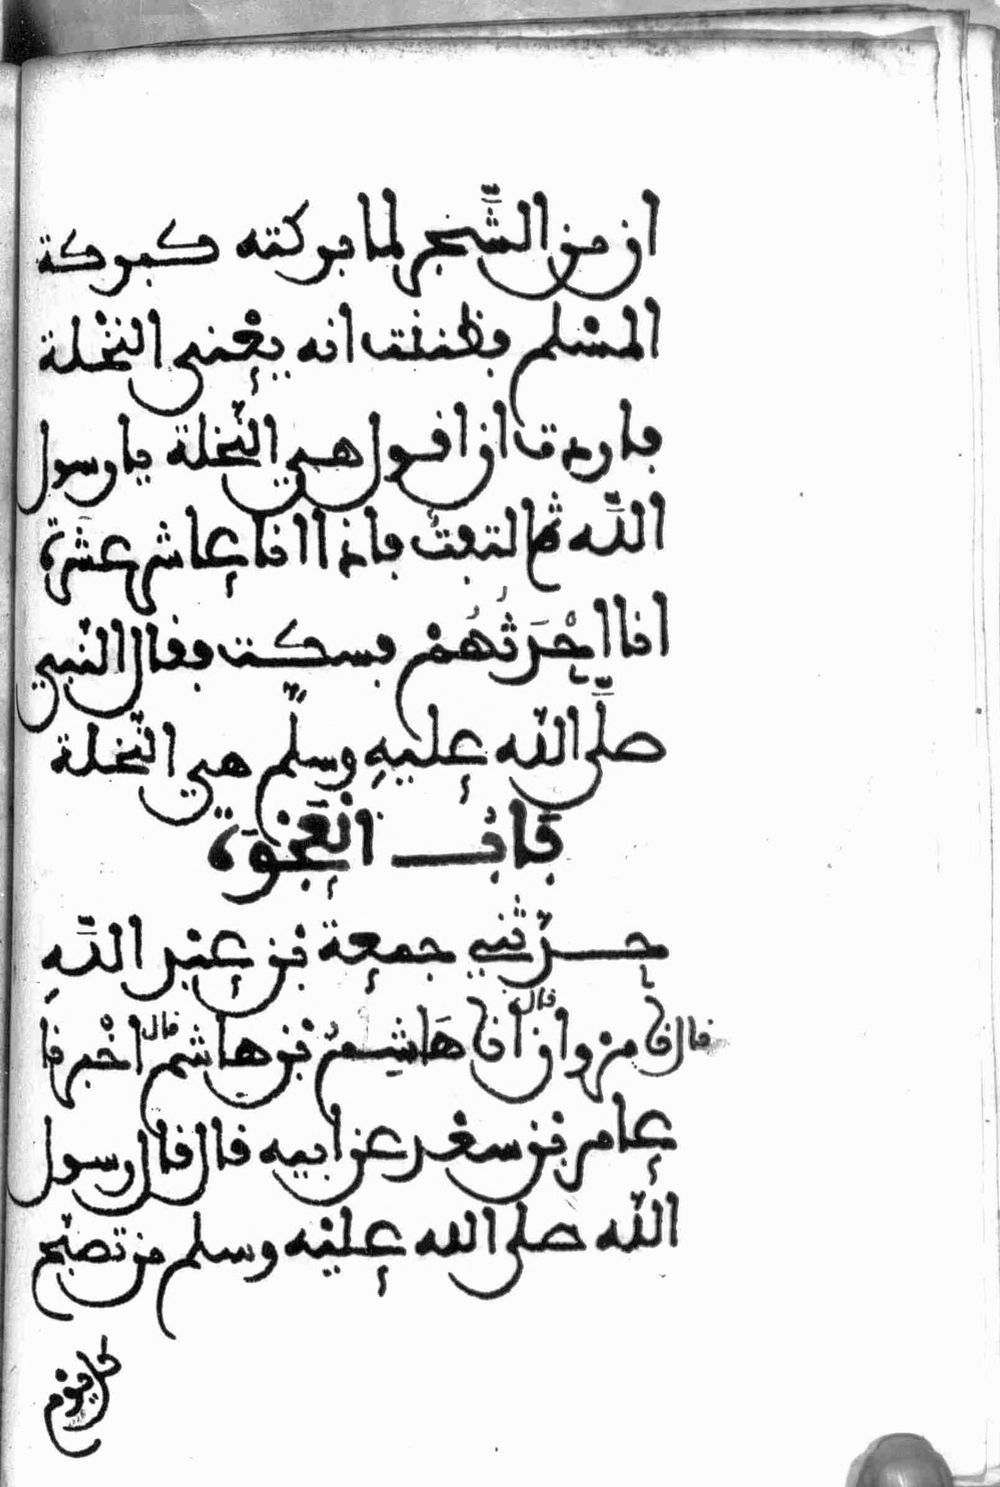 ان من الشجر لما بركته كبركة
المسلم فظننت انه يعني النخلة
فاردت ان اقول هي النخلة يا رسول
الله ثم التفت فاذا انا عاشر عشرة
انا احدثهم فسكت فقال النبي
صلى الله عليه وسلم هي النخلة
باب العجوة
حدثني جمعة بن عبد الله
قال نا مروان قال انا هاشم بن هاشم قال اخبرنا
عامر بن سعد عن ابيه قال قال رسول
الله صلى الله عليه وسلم من تصبح
كل يوم